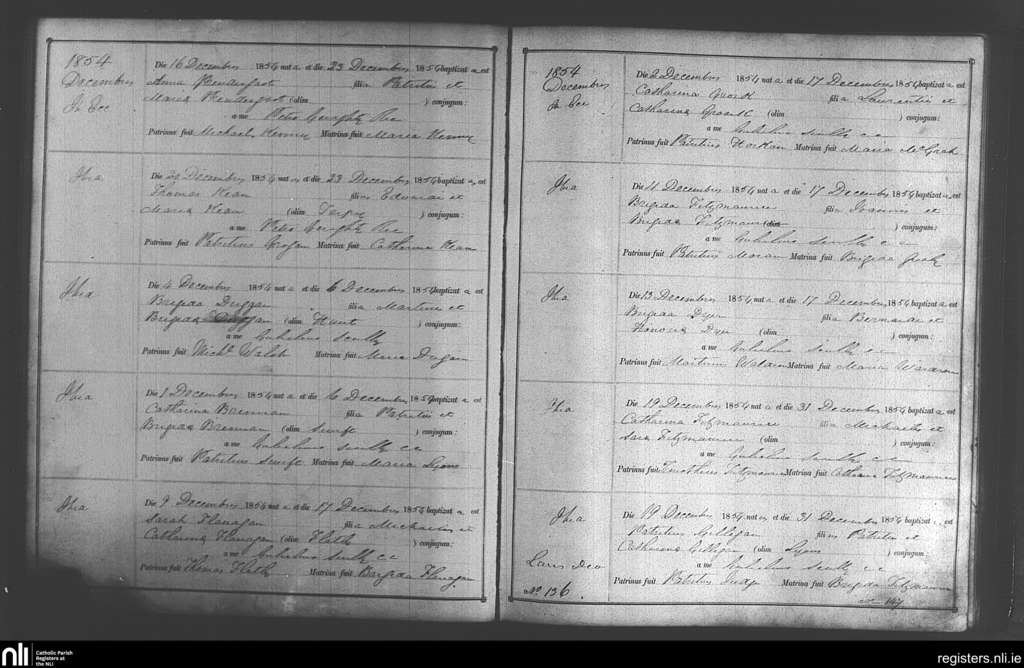 1854
Decembris
In Ecc
Die 16 Decembris 1854 nat a et die 23 Decembris 1854 baptizat a est
Anna Prendergast filia Patritii et
Maria Prendergast (olim ) conjugum:
a me Petro Geraghty
Patrinus fuit Michael Kenny Matrina fuit Maria Kenny
Ibia
Die 20 Decembris 1854 nat us et die 23 Decembris 1854 baptizat us est
Thomas Kean filius Edwardi et
Maria Kean (olim ) conjugum:
a me Petro Geraghty
Patrinus fuit Patritius Grogan Matrina fuit Catharina Kean
Ibia
Die 4 Decembris 1854 nat a et die 6 Decembris 1854 baptizat a est
Brigida Duggan filia Martini et
Brigida Duggan (olim Hunt ) conjugum:
a me
Patrinus fuit Michl Walsh Matrina fuit Maria Dugan
Ibia
Die 1 Decembris 1854 nat a et die 6 Decembris 1854 baptizat a est
Catharina Brennan filia Patritii et
Brigida Brennan (olim Swift ) conjugum:
a me c c
Patrinus fuit Patritius Swift Matrina fuit Maria Lyons
Ibia
Die 9 Decembris 1854 nat a et die 17 Decembris 1854 baptizat a est
Sarah Flanagan filia Michaelis et
Catharina Flanagan (olim ) conjugum:
a me c c
Patrinus fuit Thomas Matrina fuit Brigida Flanagan
1854
Decembris
In Ecc
Die 2 Decembris 1854 nat a et die 17 Decembris 1854 baptizat a est
Catharina filia Laurentii et
Catharina (olim ) conjugum:
a me c c
Patrinus fuit Patritius Horkan Matrina fuit Maria McGrah
Ibia
Die 11 Decembris 1854 nat a et die 17 Decembris 1854 baptizat a est
Brigida Fitzmaurice filia Joannis et
Brigida Fitzmaurice (olim ) conjugum:
a me c c
Patrinus fuit Patritius Moran Matrina fuit Brigida
Ibia
Die 13 Decembris 1854 nat a et die 17 Decembris 1854 baptizat a est
Brigida Dyer filia Bernardi et
Honoria Dyer (olim ) conjugum:
a me c c
Patrinus fuit Martinus Waldron Matrina fuit Maria Waldron
Ibia
Die 19 Decembris 1854 nat a et die 31 Decembris 1854 baptizat a est
Catharina Fitzmaurice filia Michaelis et
Sara Fitzmaurice (olim ) conjugum:
a me c c
Patrinus fuit Timotheus Fitzmaurice Matrina fuit Catharina Fitzmaurice
Ibia
Die 19 Decembris 1854 nat us et die 31 Decembris 1854 baptizat us est
Patritius Gilligan filius Patritii et
Catharina Gilligan (olim Lyons ) conjugum:
a me c c
Patrinus fuit Patritius Judge Matrina fuit Brigida Fitzmaurice
Laus Deo
No 136
147
nli
Catholic Parish
Registers at
the NLI
registers.nli.ie